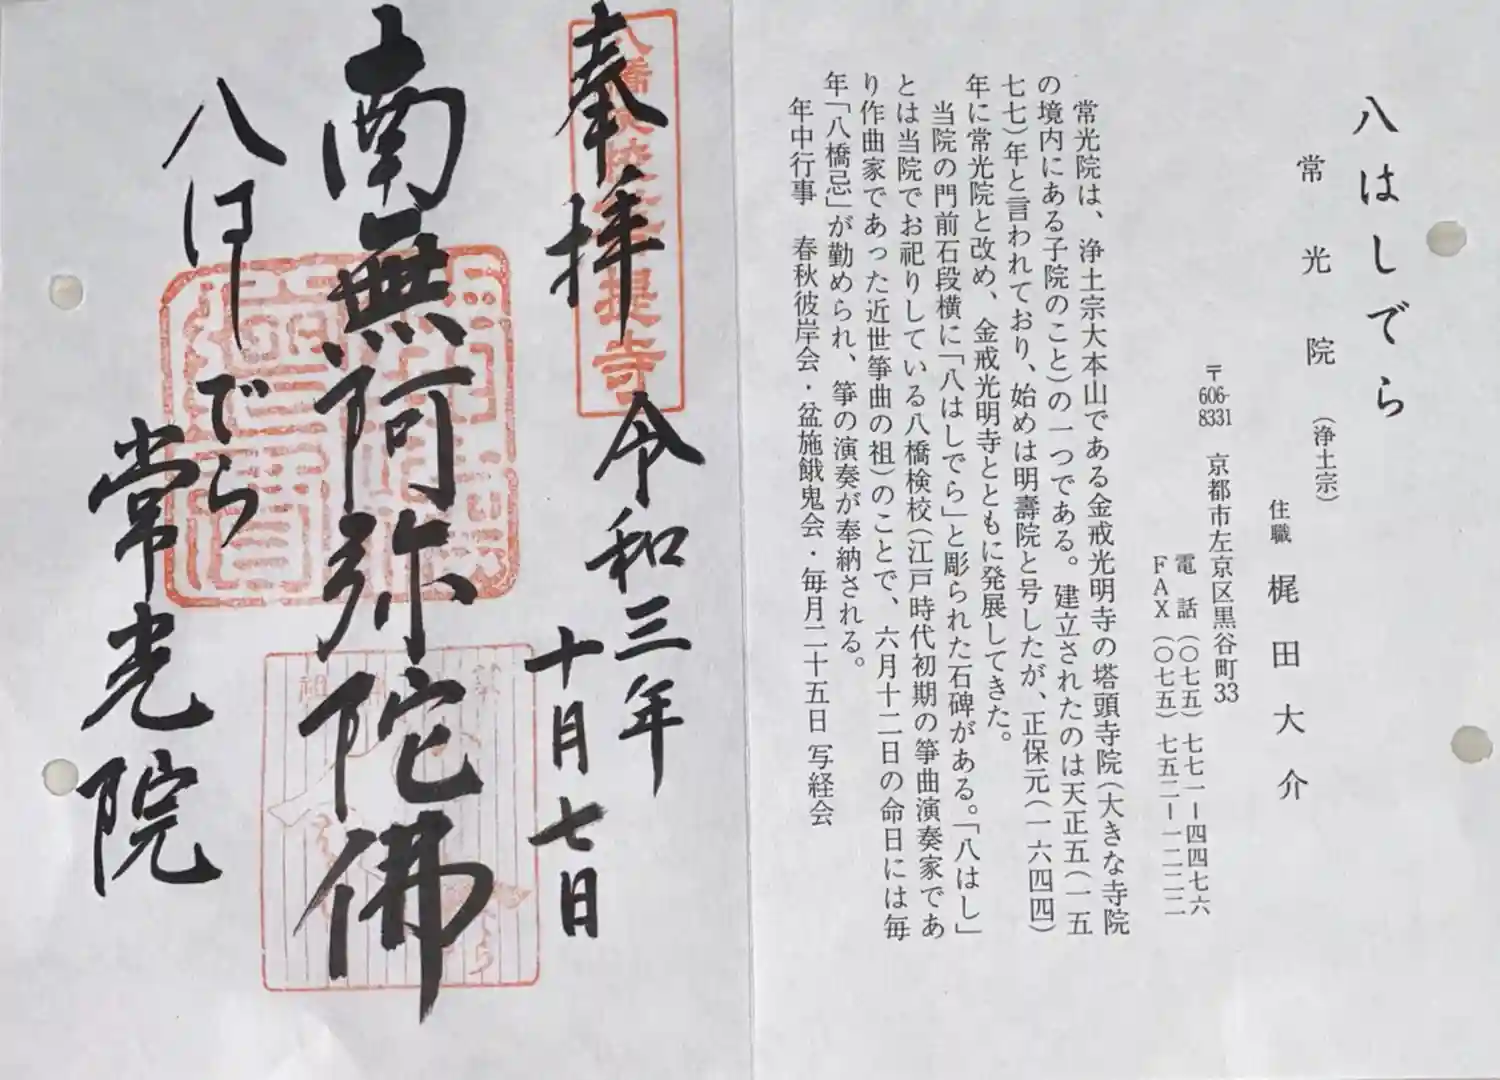 八はしでら
常光院（浄土宗）
住職 梶田大介
〒606-8331 京都市左京区黒谷町33
電話（〇七五）七七一ー四四七六
FAX（〇七五）七五二ー一二二二
常光院は、浄土宗大本山である金戒光明寺の塔頭寺院（大きな寺院
の境内にある子院のこと）の一つである。建立されたのは天正五（一五
七七）年と言われており、始めは明壽院と号したが、正保元（一六四四）
年に常光院と改め、金戒光明寺とともに発展してきた。
当院の門前石段横に「八はしでら」と彫られた石碑がある。「八はし」
とは当院でお祀りしている八橋検校（江戸時代初期の箏曲演奏家であ
り作曲家であった近世箏曲の祖）のことで、六月十二日の命日には毎
年「八橋忌」が勤められ、箏の演奏が奉納される。
年中行事 春秋彼岸会・盆施餓鬼会・毎月二十五日 写経会
奉拝
八橋検校菩提寺
令和三年
十月七日
南無阿弥陀佛
八はしでら
常光院